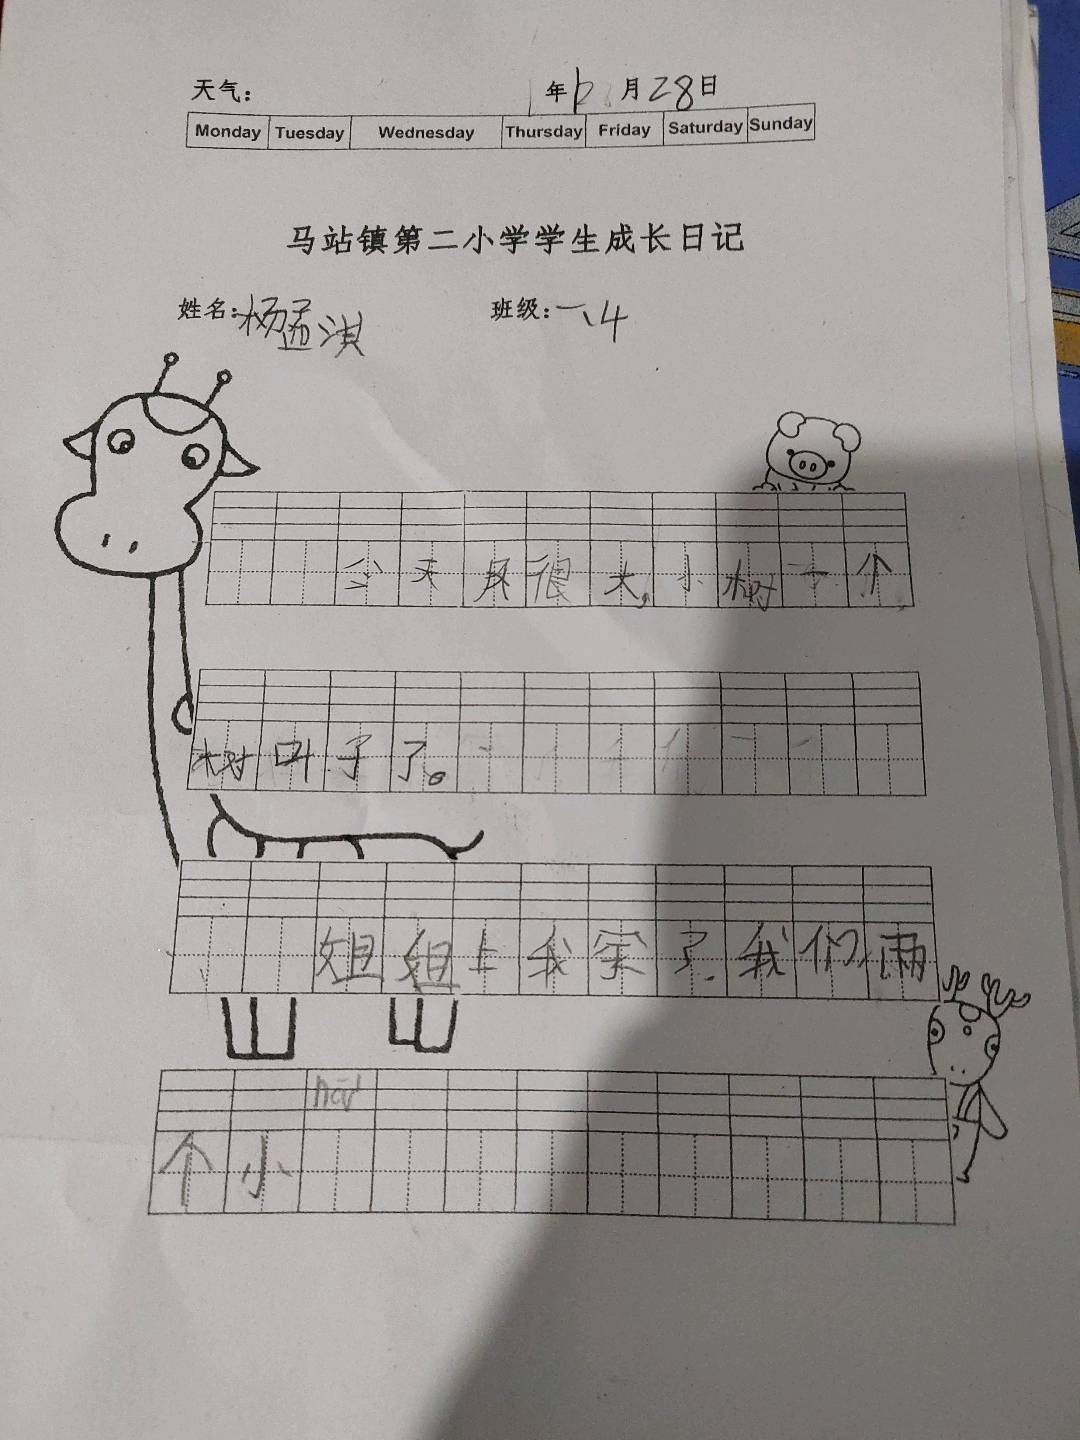 天气: 年12月28日
Monday Tuesday Wednesday Thursday Friday Saturday Sunday
马站镇第二小学学生成长日记
姓名:杨孟淇 班级:一、4
天 很大,小树 个
树叶子了。
姐姐上我家了.我们俩
个小